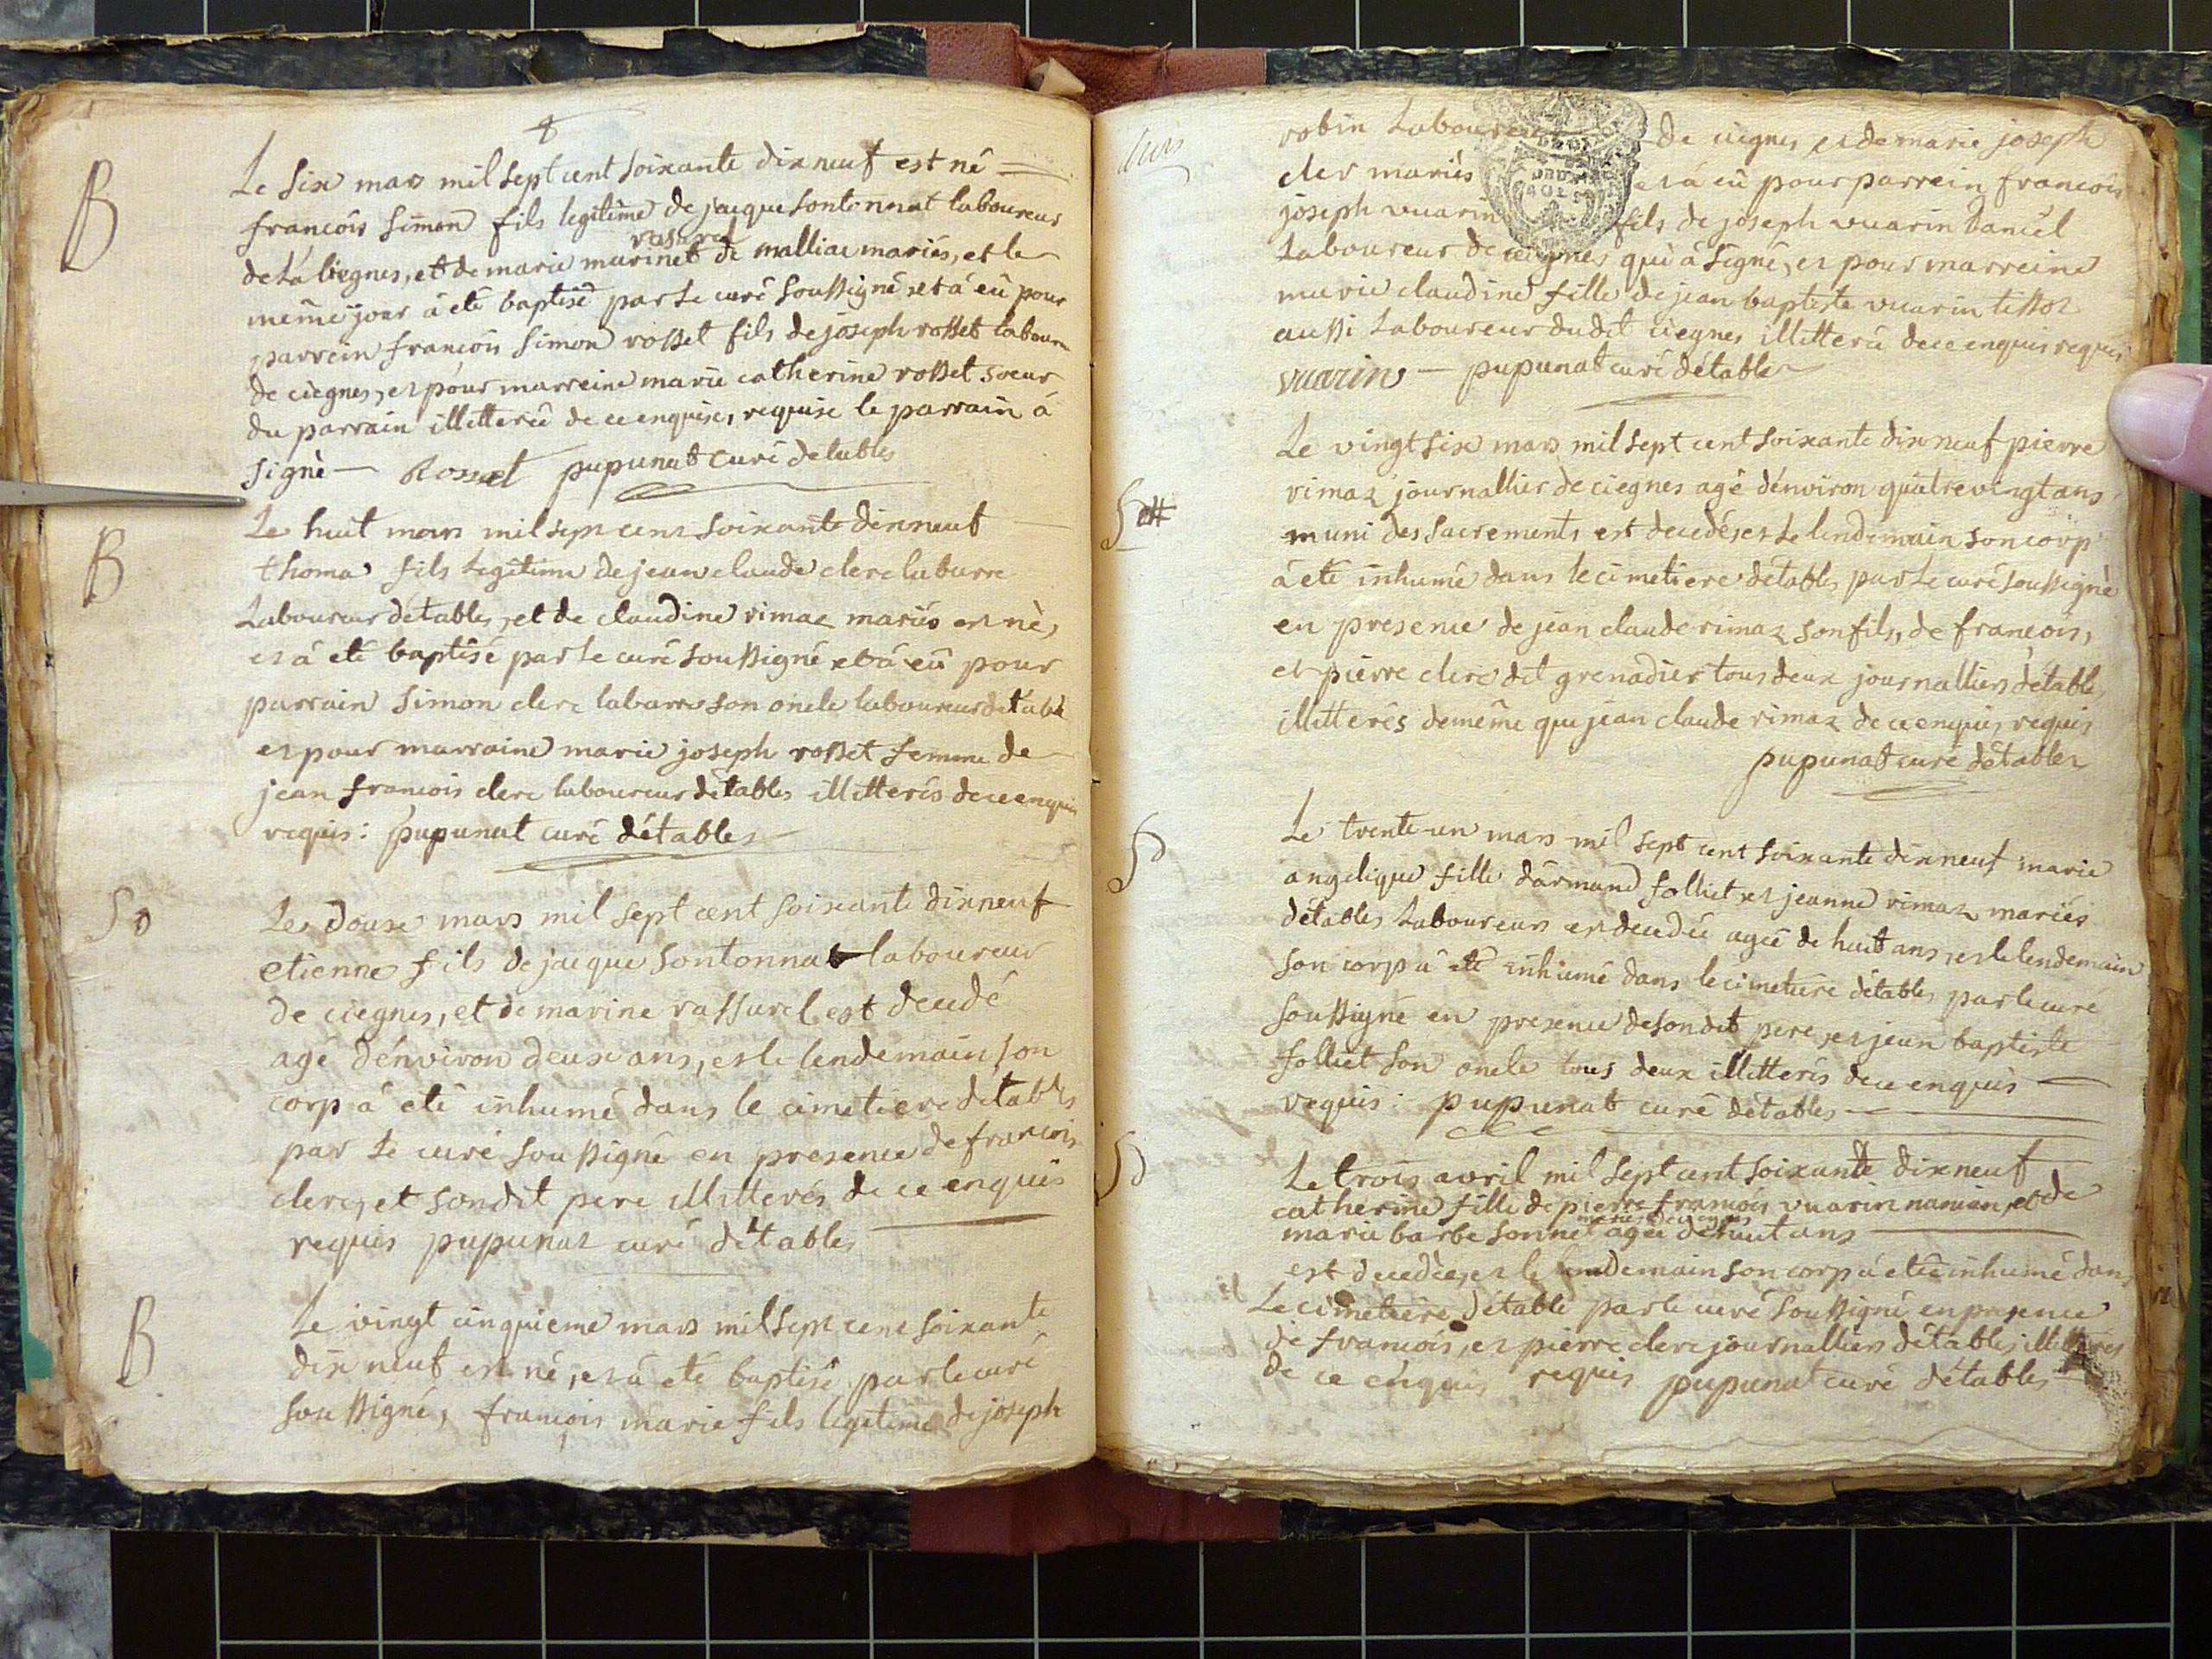 B
Le six mars mil sept cent soixante dix neuf est né
francois simon fils legitime de jacque sontonnat laboureur
de là ciegnes, et de marie marinet rassurel de malliac mariés, et le
même jour à eté baptisé par le curé soussigné et à eû pour
parrein francois simon rosset fils de joseph rosset labour
de ciegnes, et pour marreine marie catherine rosset soeur
du parrain illitterée de ce enquise, requise le parrain à
signé — Rosset pupunat curé detables
B
Le huit mars mil sept cent soixante dixneuf
thoma fils legitime de jean claude clerc labarre
Laboureur détables, et de claudine rimaz mariés est né,
et à eté baptisé par le curé soussigné et à eû pour
parrain simon clerc labarre son oncle laboureur detable
et pour marraine marie joseph rosset femme de
jean francois clerc laboureur détables illitterés de ce enquis
requis : pupunat curé détables
So
Le douze mars mil sept cent soixante dixneuf
etienne fils de jacque sontonnat laboureur
de ciegnes, et de marine rassurel est decedé
agé dénviron deux ans, et le lendemain son
corp à eté inhumé dans le cimetiere detables
par le curé soussigné en presence de francois
clerc, et sondit pere illitterés de ce enquis
requis pupunat curé détables
B
Le vingt cinquieme mars mil sept cent soixante
dix neuf est né, et à eté baptisé par le curé
soussigné, francois marie fils legitime de joseph
robin Laboureur de ciegnes et de marie joseph
cler mariés et à eû pour parrein francois
joseph vuarin fils de joseph vuarin daniel
Laboureur de ciegnes qui à signé, et pour marreine
marie claudine fille de jean baptiste vuarin tissot
aussi Laboureur dudit ciegnes illitterée de ce enquis requis
vuarin — pupunat curé détables
Le vingt six mars mil sept cent soixante dix neuf pierre
rimaz journallier de ciegnes agé dénviron quatre vingt ans
muni des sacrements est decedé, et le lendemain son corp
à eté inhumé dans le cimetiere détables par le curé soussigné
en presence de jean claude rimaz son fils, de francois,
et pierre clerc dit grenadier tous deux journalliers détables
illitterés demême que jean claude rimaz de ce enquis, requis
pupunat curé détables
Le trente-un mars mil sept cent soixante dix neuf marie
angelique fille dármand folliet et jeanne rimaz mariés
détables Laboureurs est decedée agée de huit ans, et le lendemain
son corp à eté inhumé dans le cimetiere détables par le curé
soussigné en presence de sondit pere, et jean baptiste
folliet son oncle tous deux illitterés de ce enquis
requis : pupunat curé détables
Le trois avril mil sept cent soixante dix neuf
catherine fille de pierre francois vuarin naman, et de
marie barbe sonnet mariés de ciegnes agée de huit ans
est decedée, et le lendemain son corp à eté inhumé dans
Le cimetiere détable par le curé soussigné en presence
de francois, et pierre clerc journalliers détables illitterés
de ce enquis requis pupunat curé détables